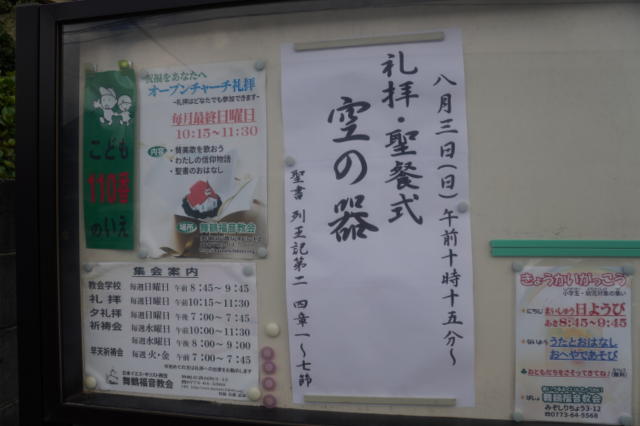 こども
110番
のいえ
祝福をあなたへ
オープンチャーチ礼拝
-礼拝はどなたでも参加できます-
毎月最終日曜日
10:15~11:30
内容
・賛美歌を歌おう
・わたしの信仰物語
・聖書のおはなし
場所
舞鶴福音教会
八月三日(日)午前十時十五分~
礼拝・聖餐式
空の器
聖書 列王記第二 四章一~七節
集会案内
教会学校 毎週日曜日 午前 8:45~9:45
礼拝 毎週日曜日 午前 10:15~11:30
夕礼拝 毎週日曜日 午後 7:00~7:45
祈祷会 毎週水曜日 午前 10:00~11:30
毎週水曜日 午後 8:00~9:00
早天祈祷会 毎週火・金 午前 7:00~7:45
日本イエス・キリスト教団
舞鶴福音教会
きょうかいがっこう
小学生・幼児対象の集い
にちじ まいしゅう日ようび
あさ8:45~9:45
ないよう うたとおはなし
おへやであそび
おともだちをさそってきてね!
ばしょ
舞鶴福音教会
みぞしりちょう3-12
0773-64-5568